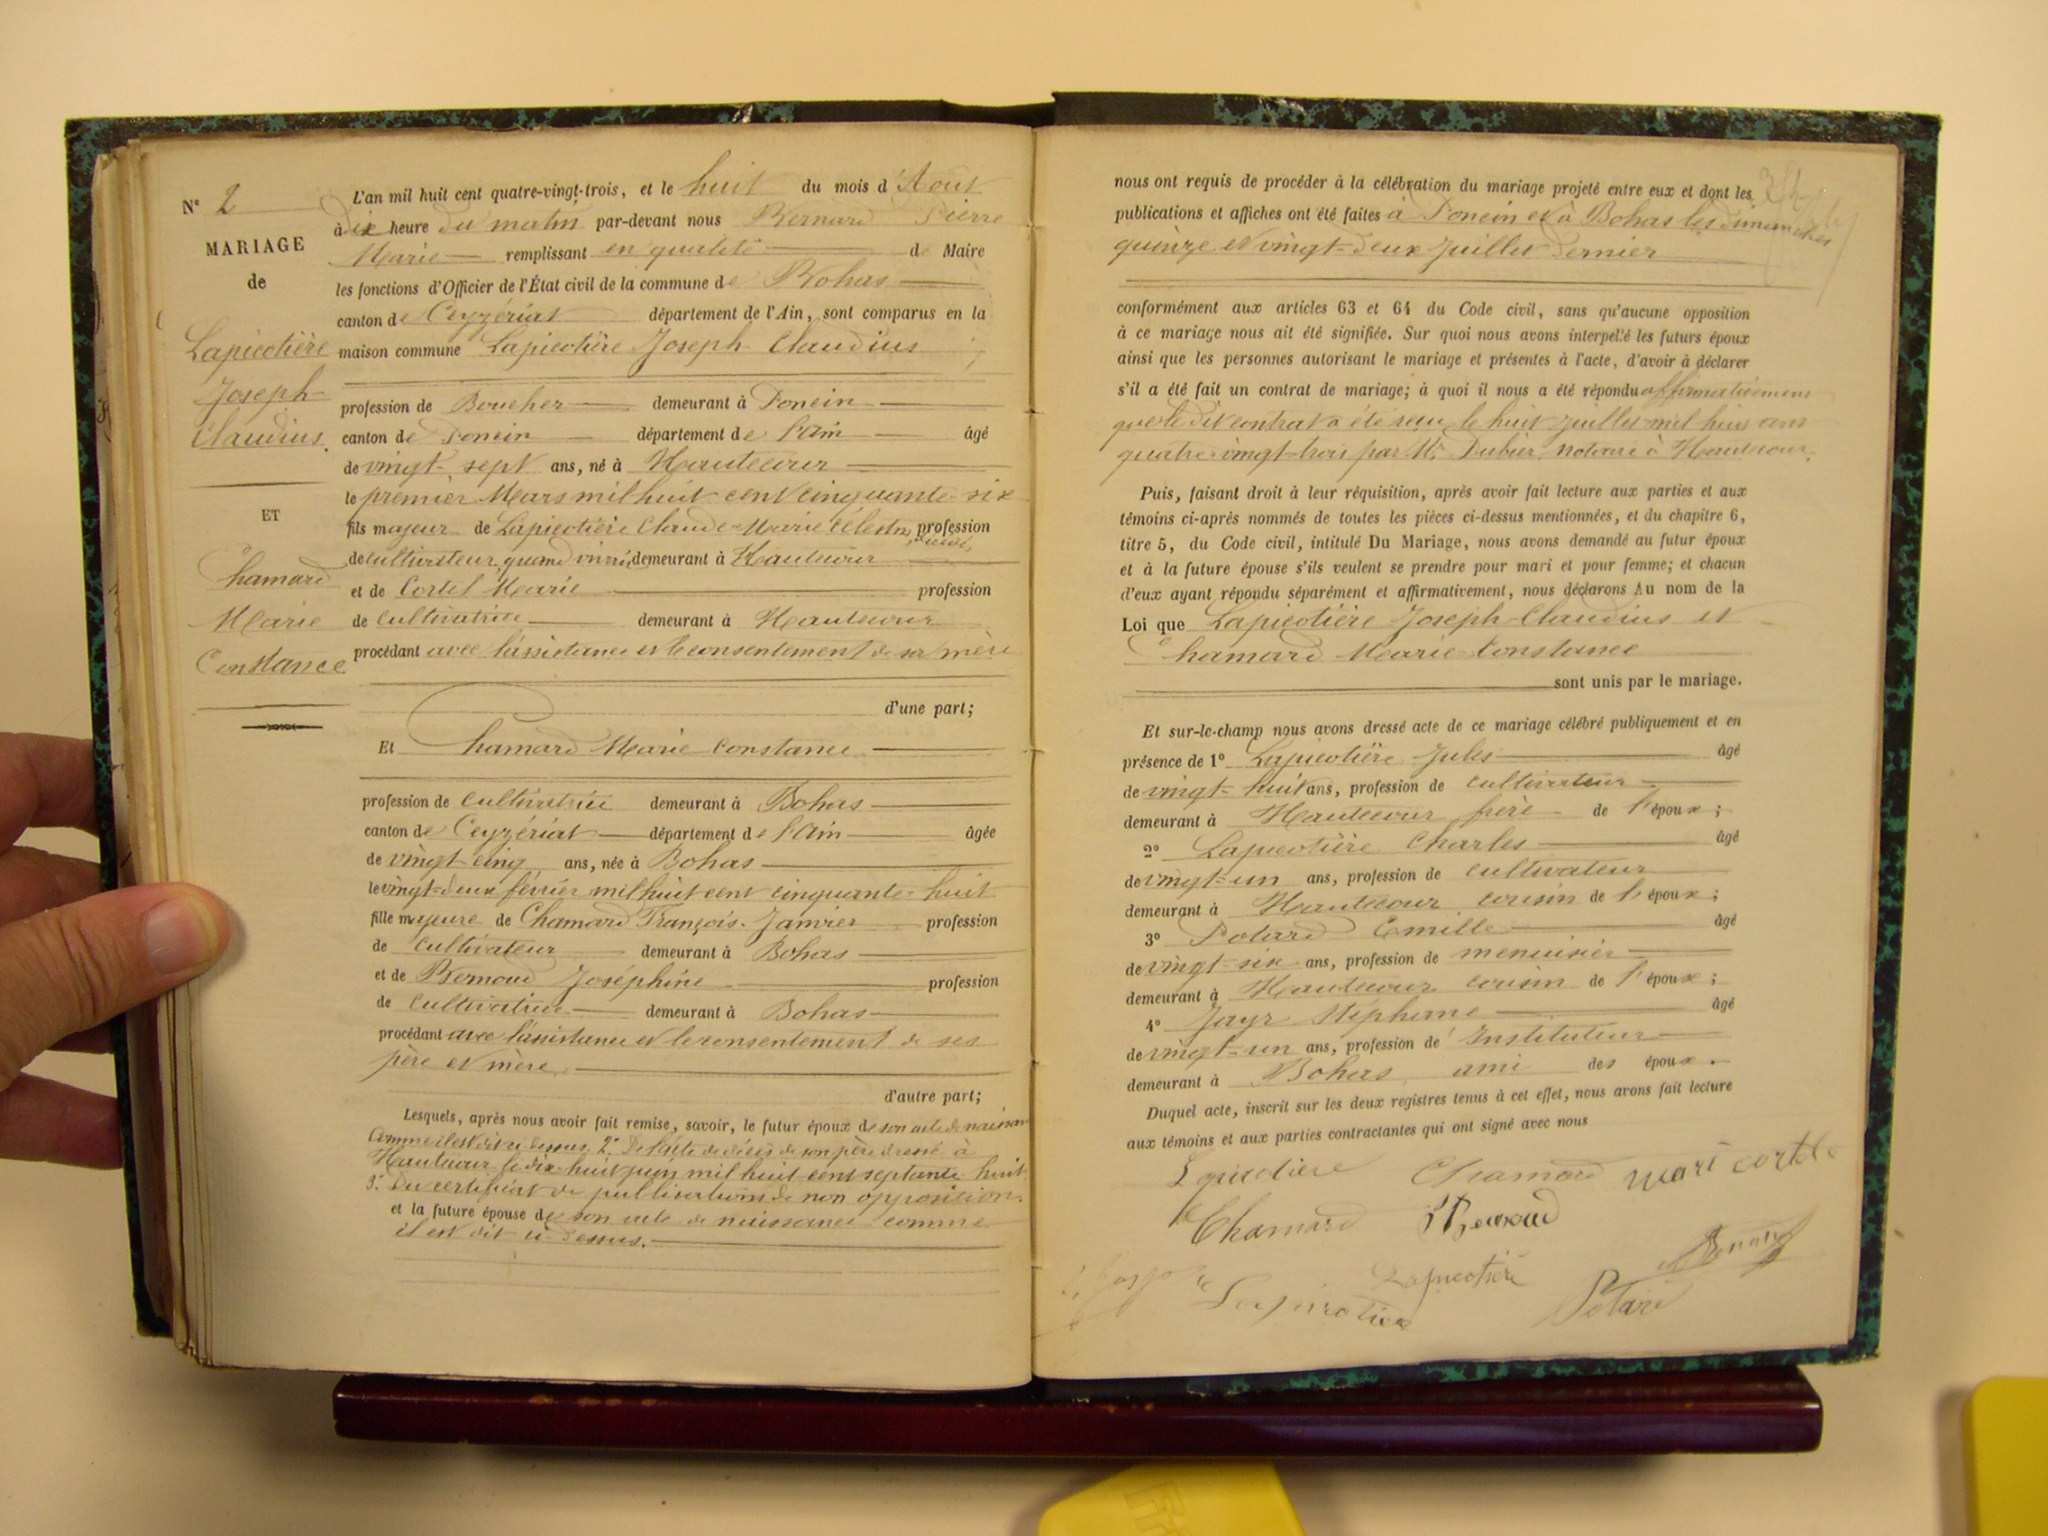 N° 2
MARIAGE
de
Lapicotière
Joseph
Claudius.
ET
Chamard
Marie
Constance
L'an mil huit cent quatre-vingt-trois, et le huit du mois d'Août
à dix heure du matin par-devant nous Bernard Pierre
Marie remplissant en qualité de Maire
les fonctions d'Officier de l'État civil de la commune de Bohas
canton de Ceyzériat département de l'Ain, sont comparus en la
maison commune Lapicotière Joseph Claudius
profession de Boucher demeurant à Poncin
canton de Poncin département de l'Ain âgé
de vingt-sept ans, né à Hautecour
le premier Mars mil huit cent cinquante-six
fils majeur de Lapicotière Claude-Marie Célestin, profession
de cultivateur quand vivait, demeurant à Hautecour
et de Cortel Marie profession
de cultivatrice demeurant à Hautecour
procédant avec l'assistance et le consentement de sa mère
d'une part;
Et Chamard Marie Constance
profession de cultivatrice demeurant à Bohas
canton de Ceyzériat département de l'Ain âgée
de vingt-cinq ans, née à Bohas
le vingt-deux février mil huit cent cinquante-huit
fille majeure de Chamard François-Janvier profession
de cultivateur demeurant à Bohas
et de Bernoud Joséphine profession
de cultivatrice demeurant à Bohas
procédant avec l'assistance et le consentement de ses
père et mère.
d'autre part;
Lesquels, après nous avoir fait remise, savoir, le futur époux de son acte de naissance
comme il est dit ci-dessus 2° De l'acte de décès de son père dressé à
Hautecour le dix-huit juin mil huit cent septante huit
3° Du certificat de publications de non opposition.
et la future épouse de son acte de naissance comme
il est dit ci-dessus.
nous ont requis de procéder à la célébration du mariage projeté entre eux et dont les
publications et affiches ont été faites à Poncin et à Bohas les dimanches
quinze et vingt-deux Juillet dernier
conformément aux articles 63 et 64 du Code civil, sans qu'aucune opposition
à ce mariage nous ait été signifiée. Sur quoi nous avons interpellé les futurs époux
ainsi que les personnes autorisant le mariage et présentes à l'acte, d'avoir à déclarer
s'il a été fait un contrat de mariage; à quoi il nous a été répondu affirmativement
que le dit contrat a été reçu le huit Juillet mil huit cent
quatre-vingt-trois par Me Dubier notaire à Hautecour.
Puis, faisant droit à leur réquisition, après avoir fait lecture aux parties et aux
témoins ci-après nommés de toutes les pièces ci-dessus mentionnées, et du chapitre 6,
titre 5, du Code civil, intitulé Du Mariage, nous avons demandé au futur époux
et à la future épouse s'ils veulent se prendre pour mari et pour femme; et chacun
d'eux ayant répondu séparément et affirmativement, nous déclarons Au nom de la
Loi que Lapicotière Joseph-Claudius et
Chamard Marie Constance
sont unis par le mariage.
Et sur-le-champ nous avons dressé acte de ce mariage célébré publiquement et en
présence de 1° Lapicotière Jules âgé
de vingt-huit ans, profession de cultivateur
demeurant à Hautecour frère de l'époux;
2° Lapicotière Charles âgé
de vingt-un ans, profession de cultivateur
demeurant à Hautecour cousin de l'époux;
3° Potard Emille âgé
de vingt-six ans, profession de menuisier
demeurant à Hautecour cousin de l'époux;
4° Jayr Stéphane âgé
de vingt-un ans, profession de Instituteur
demeurant à Bohas ami des époux.
Duquel acte, inscrit sur les deux registres tenus à cet effet, nous avons fait lecture
aux témoins et aux parties contractantes qui ont signé avec nous
Lapicotiere Chamard mari cortel
Chamard Bernoud
Lapicotière
Lapicotière Potard